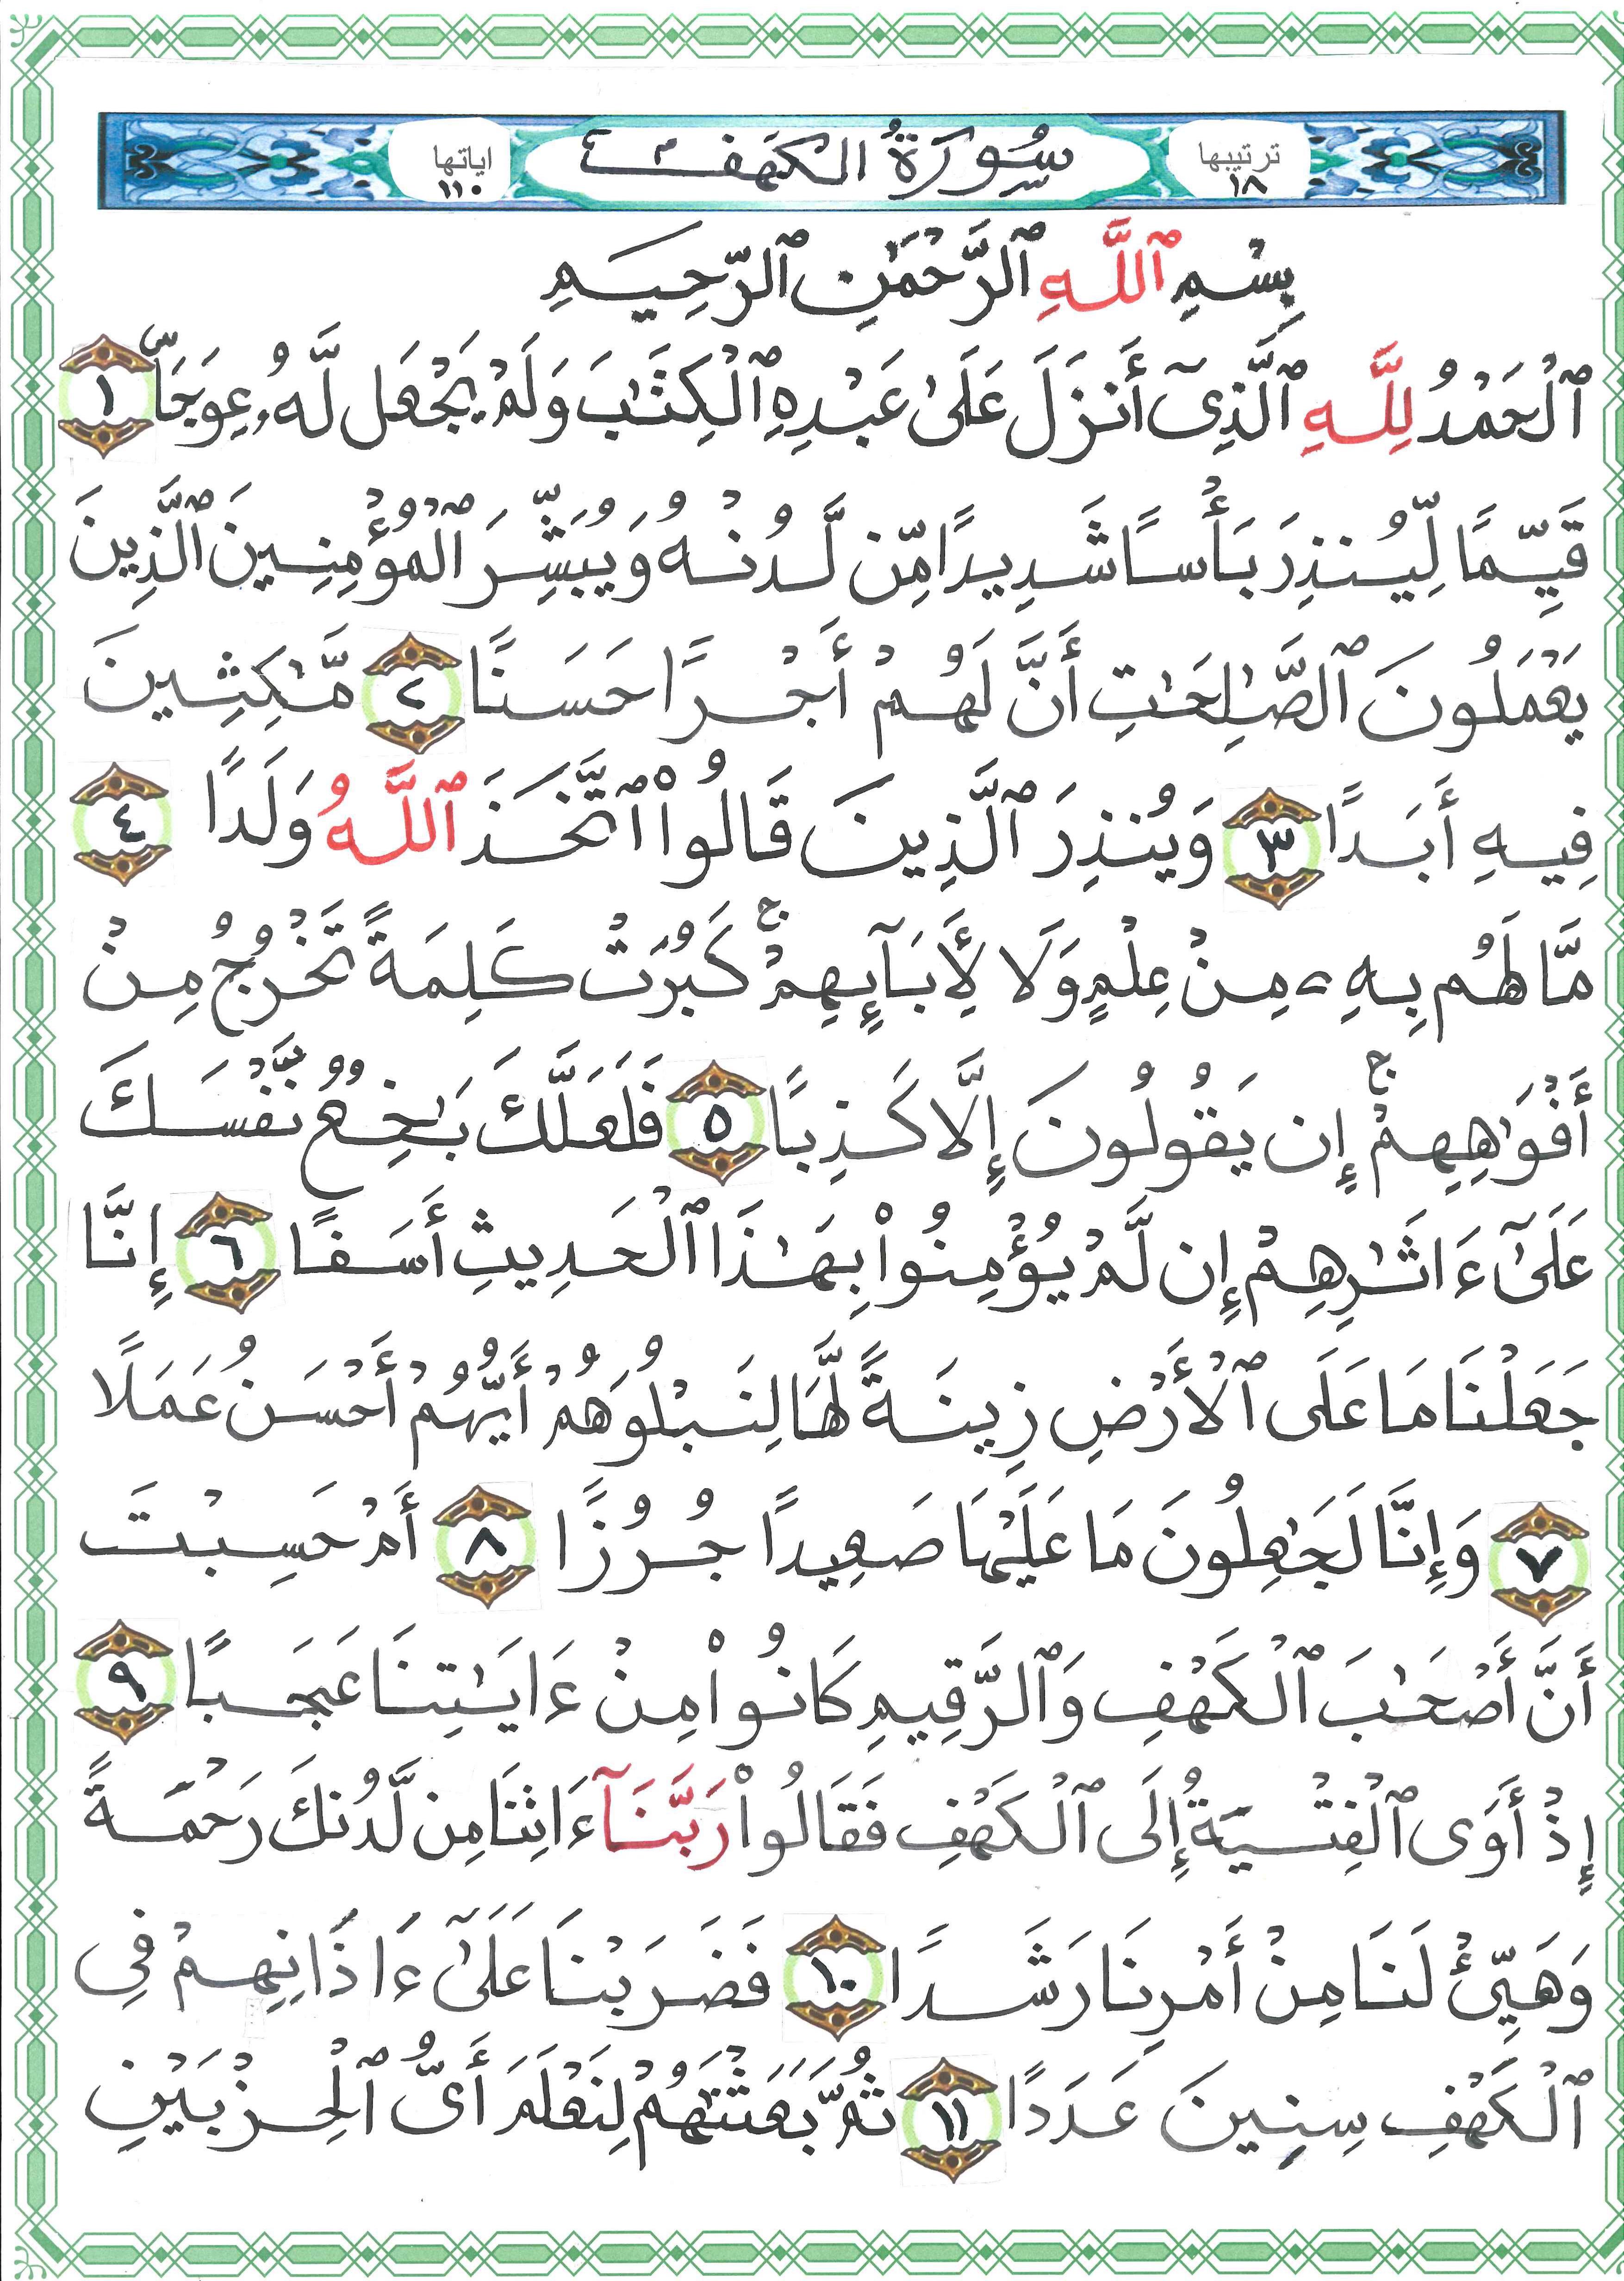 ترتيبها ١٨ سُورَةُ الكَهَف اياتها ١١٠
بِسْمِ ٱللَّهِ ٱلرَّحْمَٰنِ ٱلرَّحِيمِ
ٱلْحَمْدُ لِلَّهِ ٱلَّذِىٓ أَنزَلَ عَلَىٰ عَبْدِهِ ٱلْكِتَٰبَ وَلَمْ يَجْعَل لَّهُۥ عِوَجَاۜ ١
قَيِّمًا لِّيُنذِرَ بَأْسًا شَدِيدًا مِّن لَّدُنْهُ وَيُبَشِّرَ ٱلْمُؤْمِنِينَ ٱلَّذِينَ
يَعْمَلُونَ ٱلصَّٰلِحَٰتِ أَنَّ لَهُمْ أَجْرًا حَسَنًا ٢ مَّٰكِثِينَ
فِيهِ أَبَدًا ٣ وَيُنذِرَ ٱلَّذِينَ قَالُوا۟ ٱتَّخَذَ ٱللَّهُ وَلَدًا ٤
مَّا لَهُم بِهِۦ مِنْ عِلْمٍ وَلَا لِأَبَآئِهِمْ ۚ كَبُرَتْ كَلِمَةً تَخْرُجُ مِنْ
أَفْوَٰهِهِمْ ۚ إِن يَقُولُونَ إِلَّا كَذِبًا ٥ فَلَعَلَّكَ بَٰخِعٌ نَّفْسَكَ
عَلَىٰٓ ءَاثَٰرِهِمْ إِن لَّمْ يُؤْمِنُوا۟ بِهَٰذَا ٱلْحَدِيثِ أَسَفًا ٦ إِنَّا
جَعَلْنَا مَا عَلَى ٱلْأَرْضِ زِينَةً لَّهَا لِنَبْلُوَهُمْ أَيُّهُمْ أَحْسَنُ عَمَلًا
٧ وَإِنَّا لَجَٰعِلُونَ مَا عَلَيْهَا صَعِيدًا جُرُزًا ٨ أَمْ حَسِبْتَ
أَنَّ أَصْحَٰبَ ٱلْكَهْفِ وَٱلرَّقِيمِ كَانُوا۟ مِنْ ءَايَٰتِنَا عَجَبًا ٩
إِذْ أَوَى ٱلْفِتْيَةُ إِلَى ٱلْكَهْفِ فَقَالُوا۟ رَبَّنَآ ءَاتِنَا مِن لَّدُنكَ رَحْمَةً
وَهَيِّئْ لَنَا مِنْ أَمْرِنَا رَشَدًا ١٠ فَضَرَبْنَا عَلَىٰٓ ءَاذَانِهِمْ فِى
ٱلْكَهْفِ سِنِينَ عَدَدًا ١١ ثُمَّ بَعَثْنَٰهُمْ لِنَعْلَمَ أَىُّ ٱلْحِزْبَيْنِ